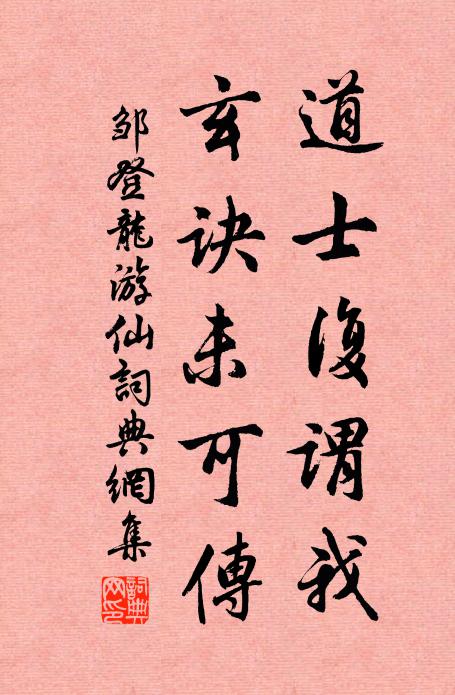 道士復謂我
玄訣未可傳
邹登龍游仙詞典網集
詞典网印